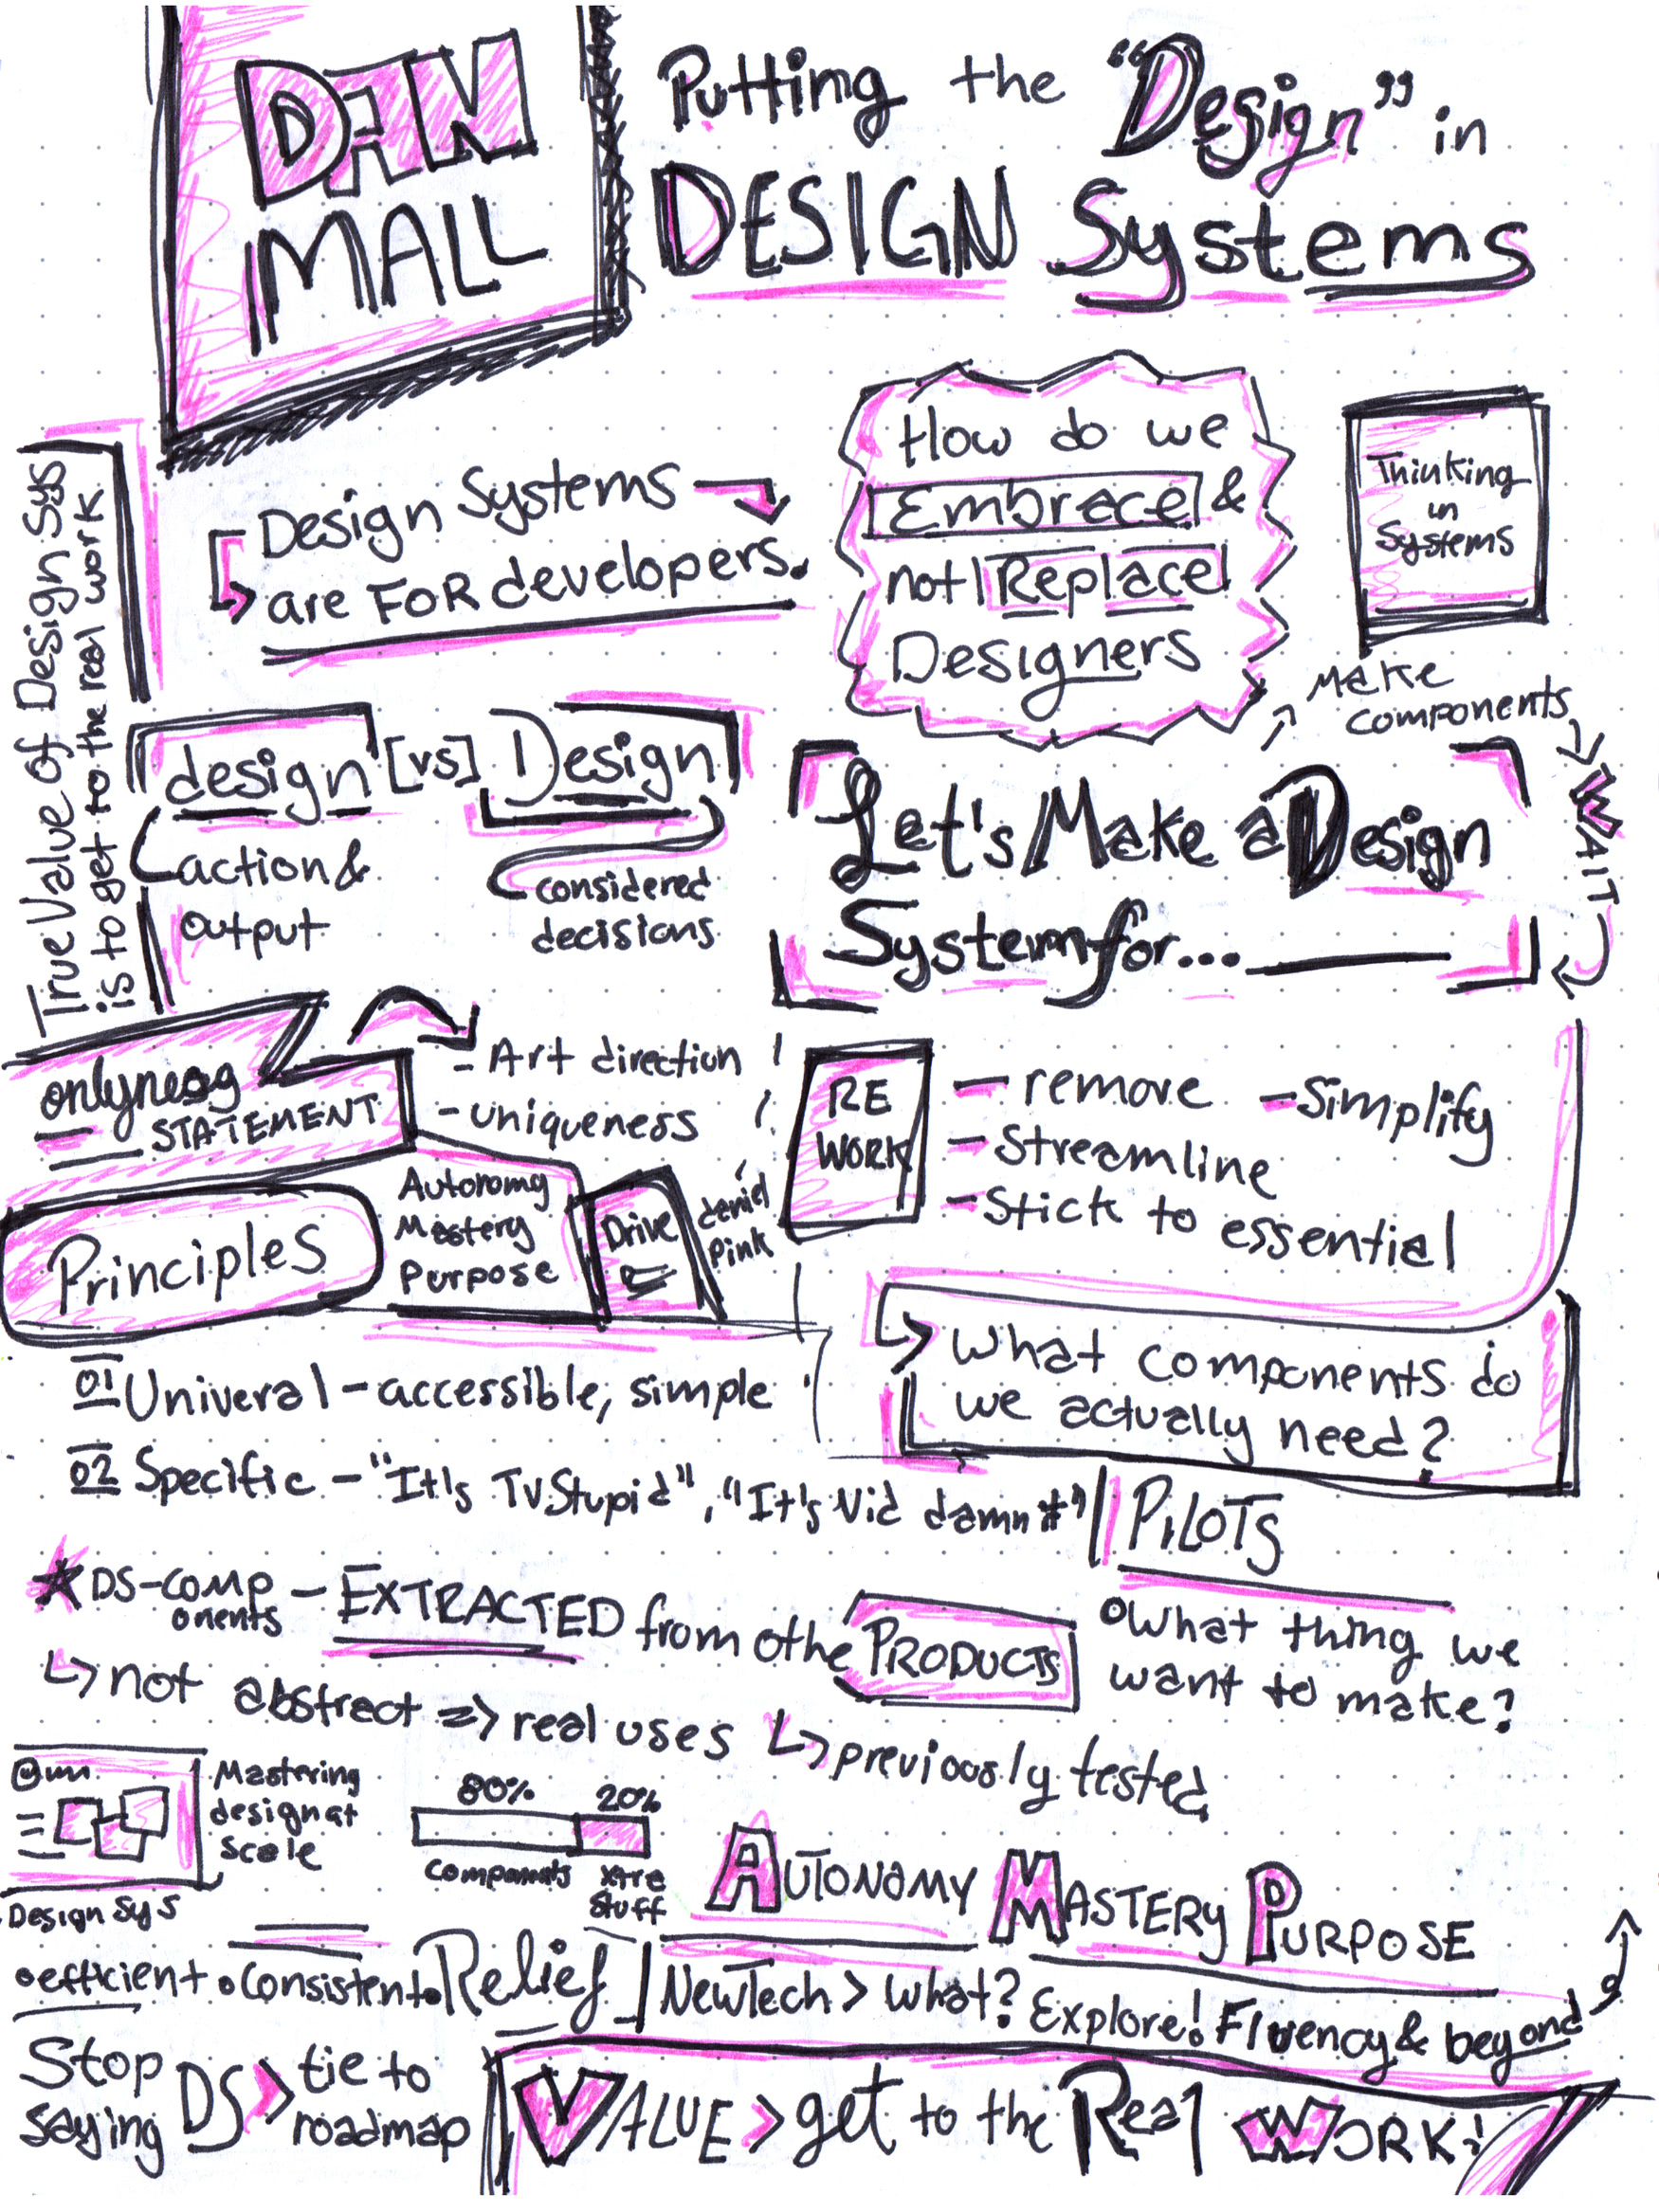 DAN
MALL
Putting the "Design" in
DESIGN Systems
True Value of Design Sys
is to get to the real work
Design Systems
are FOR developers.
How do we
Embrace &
not Replace
Designers
Thinking
in
Systems
Make
components
WAIT
design [vs] Design
action &
output
considered
decisions
Let's Make a Design
System for...
onlyness
STATEMENT
- Art direction
- uniqueness
Principles
Autonomy
Mastery
Purpose
Drive
daniel
pink
RE
WORK
- remove - Simplify
- Streamline
- Stick to essential
What components do
we actually need?
01 Univeral - accessible, simple
02 Specific - "It's TV Stupid", "It's Vid damn#"
PILOTS
• What thing we
want to make?
DS-comp
onents - EXTRACTED from othe PRODUCTS
not abstract => real uses
previously tested
Mastering
design at
Scale
Design Sys
80% 20%
Components xtra
Stuff
AUTONAMY MASTERY PURPOSE
• efficient • Consistent • Relief
NewTech > What? Explore! Fluency & beyond
Stop
saying DS > tie to
roadmap
VALUE > get to the Real WORK!